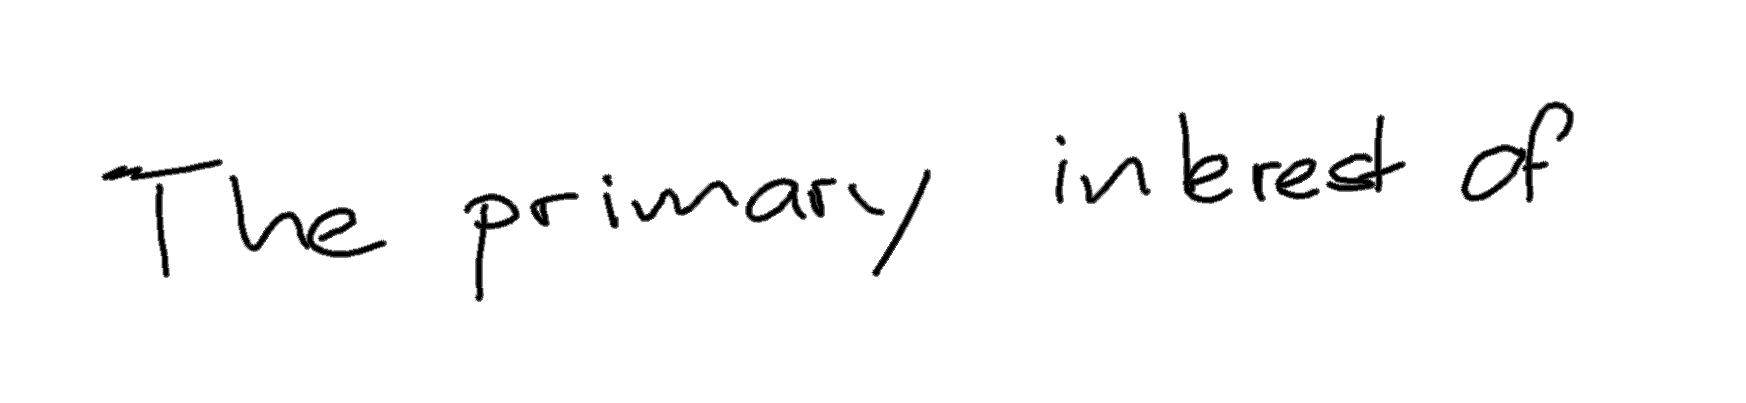 The primary interest of